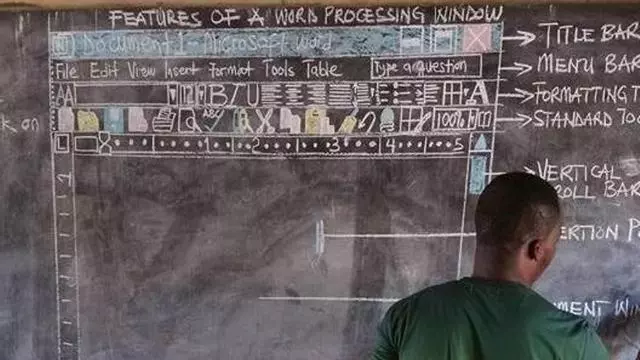 FEATURES OF A WORD PROCESSING WINDOW
Document 1 - Microsoft Word
TITLE BAR
File Edit View Insert Format Tools Table Type a question
MENU BAR
AA 12 B I U A
FORMATTING T
ck on
ABC 100%
STANDARD TOO
L 1 2 3 4 5
VERTICAL
ROLL BAR
ERTION P
UMENT WIN